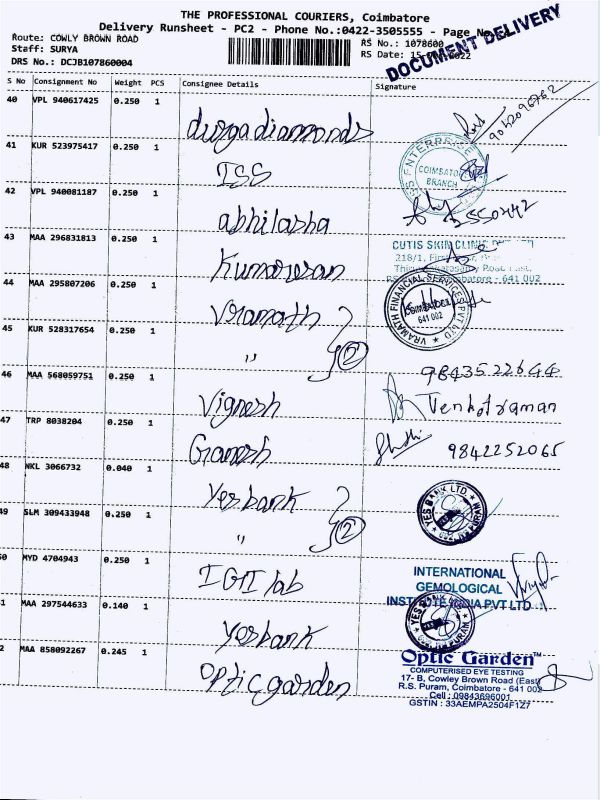 THE PROFESSIONAL COURIERS, Coimbatore
Delivery Runsheet - PC2 - Phone No.:0422-3505555 - Page No
Route: COWLY BROWN ROAD
RS No.: 1078600
Staff: SURYA
RS Date: 15
DRS No.: DCJB107860004
DOCUMENT DELIVERY
S No Consignment No Weight PCS Consignee Details Signature
40 VPL 940617425 0.250 1
durga diamonds
9052096762
41 KUR 523975417 0.250 1
ISS
COIMBATORE
BRANCH
42 VPL 940081187 0.250 1
abhilasha
43 MAA 296831813 0.250 1
Kumaresan
CUTIS SKIN CLINIC
218/1,
641 002
44 MAA 295807206 0.250 1
Vramath
VRAMATH FINANCIAL SERVICES PVT LTD
COIMBATORE
641 002
45 KUR 528317654 0.250 1
" 2
46 MAA 568059751 0.250 1
Vignesh
9843522644
Venkatraman
47 TRP 8038204 0.250 1
Ganesh
9842252065
48 NKL 3066732 0.040 1
Yesbank
YES BANK LTD.
49 SLM 309433948 0.250 1
" 2
50 MYD 4704943 0.250 1
IGI lab
INTERNATIONAL
GEMOLOGICAL
INSTITUTE INDIA PVT LTD
1 MAA 297544633 0.140 1
yesbank
2 MAA 858092267 0.245 1
Optic garden
Optic Garden™
COMPUTERISED EYE TESTING
17- B, Cowley Brown Road (East)
R.S. Puram, Coimbatore - 641 002
Cell : 09843696001
GSTIN : 33AEMPA2504F1Z7